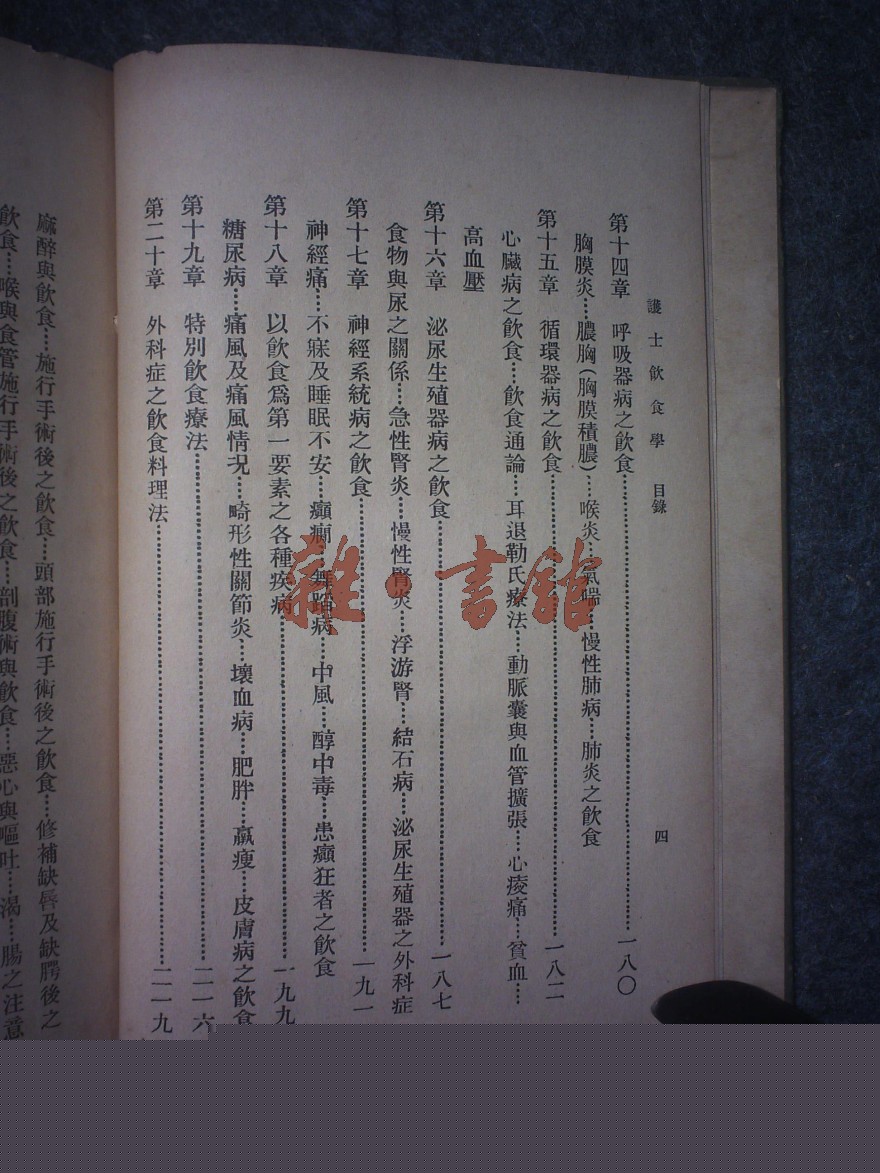 護士飲食學 目錄 四
第十四章 呼吸器病之飲食……一八〇
胸膜炎…膿胸(胸膜積膿)…喉炎…氣喘…慢性肺病…肺炎之飲食
第十五章 循環器病之飲食……一八二
心臟病之飲食…飲食通論…耳退勒氏療法…動脈囊與血管擴張…心痠痛…貧血…
高血壓
第十六章 泌尿生殖器病之飲食……一八七
食物與尿之關係…急性腎炎…慢性腎炎…浮游腎…結石病…泌尿生殖器之外科症
第十七章 神經系統病之飲食……一九一
神經痛…不寐及睡眠不安…癲癇…舞蹈病…中風…醇中毒…患癲狂者之飲食
第十八章 以飲食爲第一要素之各種疾病……一九九
糖尿病…痛風及痛風情況…畸形性關節炎…壞血病…肥胖…羸瘦…皮膚病之飲食
第十九章 特別飲食療法……二一六
第二十章 外科症之飲食料理法……二一九
麻醉與飲食…施行手術後之飲食…頭部施行手術後之飲食…修補缺唇及缺腭後之
飲食…喉與食管施行手術後之飲食…剖腹術與飲食…惡心與嘔吐…渴…腸之注意
雜·書館